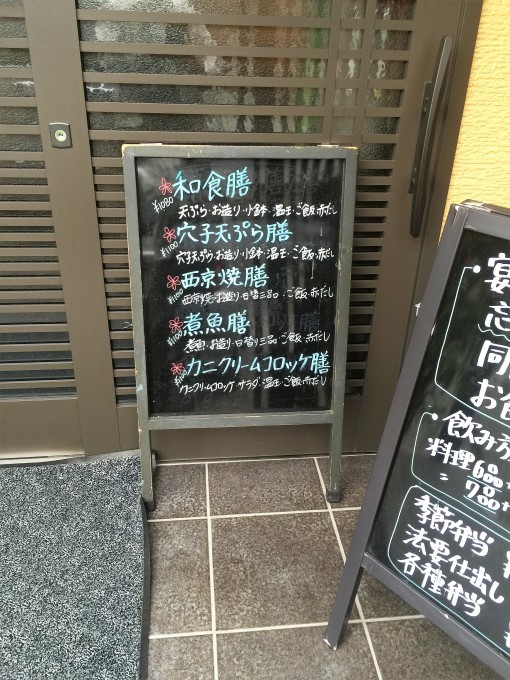 和食膳
¥1080
天ぷら・お造り・小鉢・温玉・ご飯・赤だし
穴子天ぷら膳
¥1100
穴子天ぷら・お造り・小鉢・温玉・ご飯・赤だし
西京焼膳
¥1100
西京焼・お造り・日替三品・ご飯・赤だし
煮魚膳
¥1100
煮魚・お造り・日替り三品・ご飯・赤だし
カニクリームコロッケ膳
¥1100
カニクリームコロッケ・サラダ・温玉・ご飯・赤だし
・宴
忘
同
お食
・飲み放
料理6品
〃7品
季節弁当
法要仕出し
各種弁当